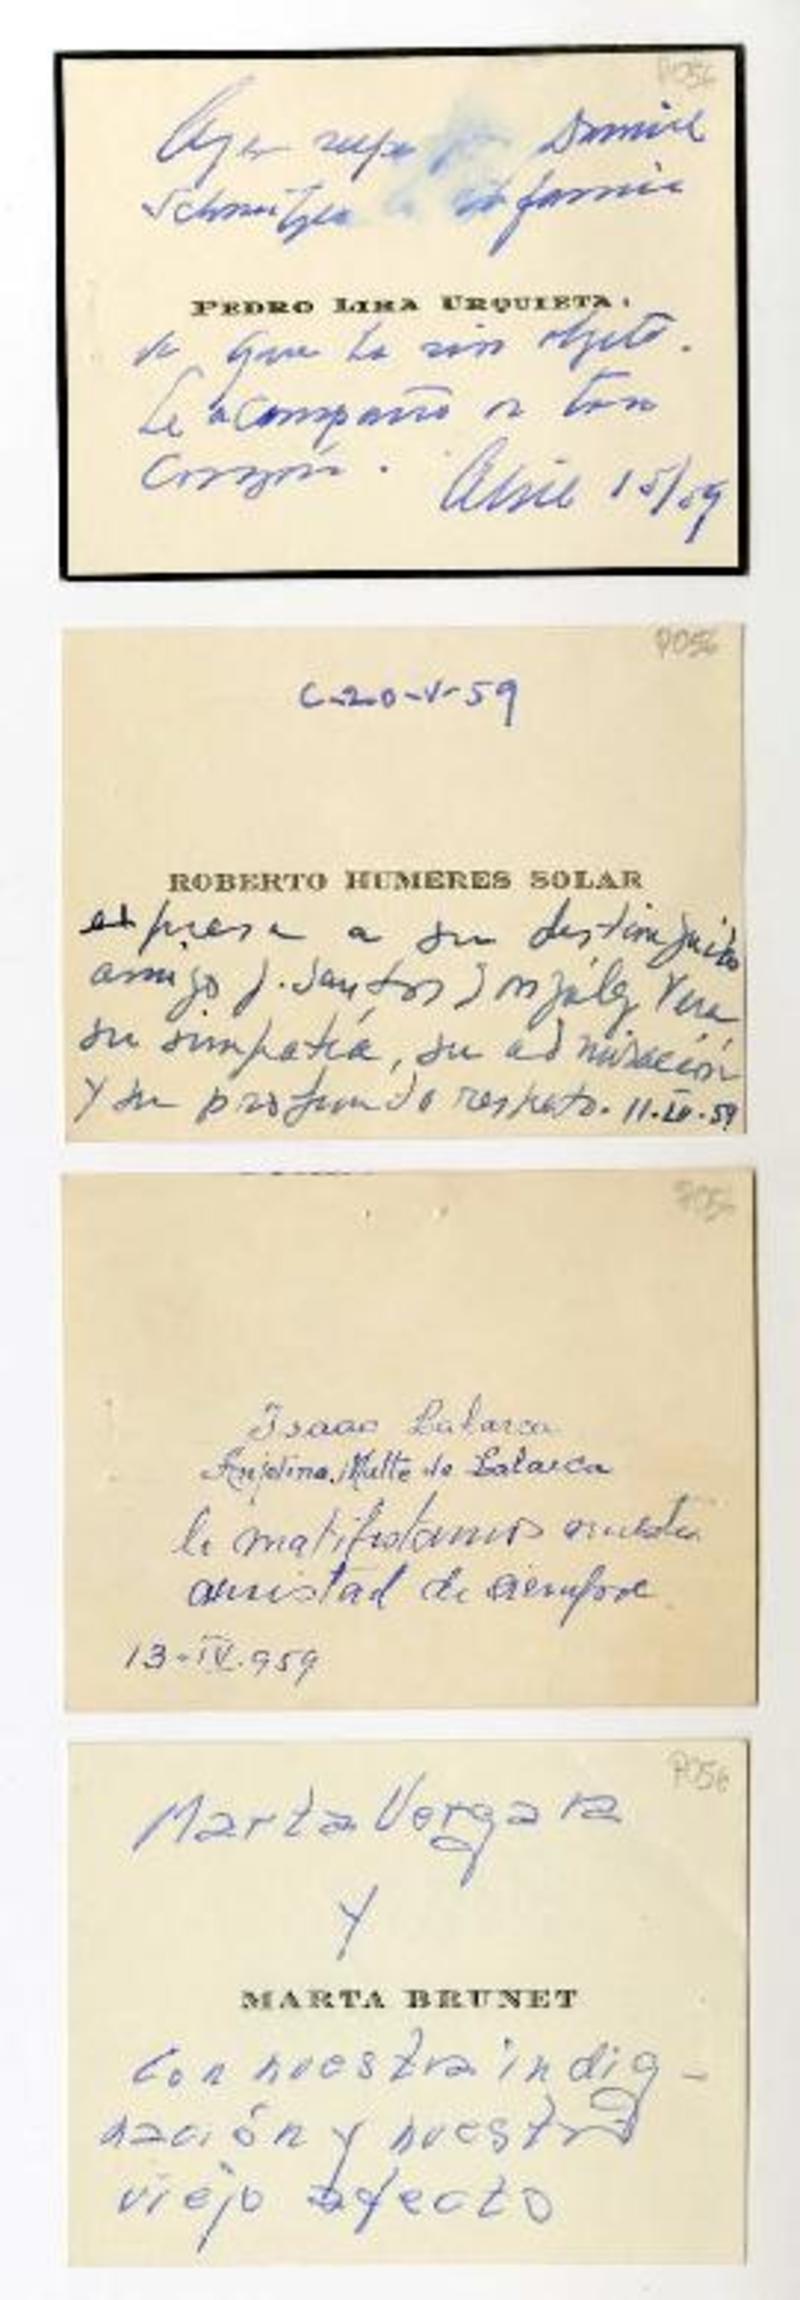 P056
Ayer supe por Daniel
Schweitzer la infamia
PEDRO LIRA URQUIETA
de que ha sido objeto.
Le acompaño de todo
corazón. Abril 15/59
P056
C-20-V-59
ROBERTO HUMERES SOLAR
expresa a su distinguido
amigo J. Santos González Vera
su simpatía, su admiración
y su profundo respeto. 11-IV-59
P056
Isaac
de
le manifestamos nuestra
amistad de siempre
13-IV-959
P056
Marta Vergara
y
MARTA BRUNET
con nuestra indig-
nación y nuestro
viejo afecto